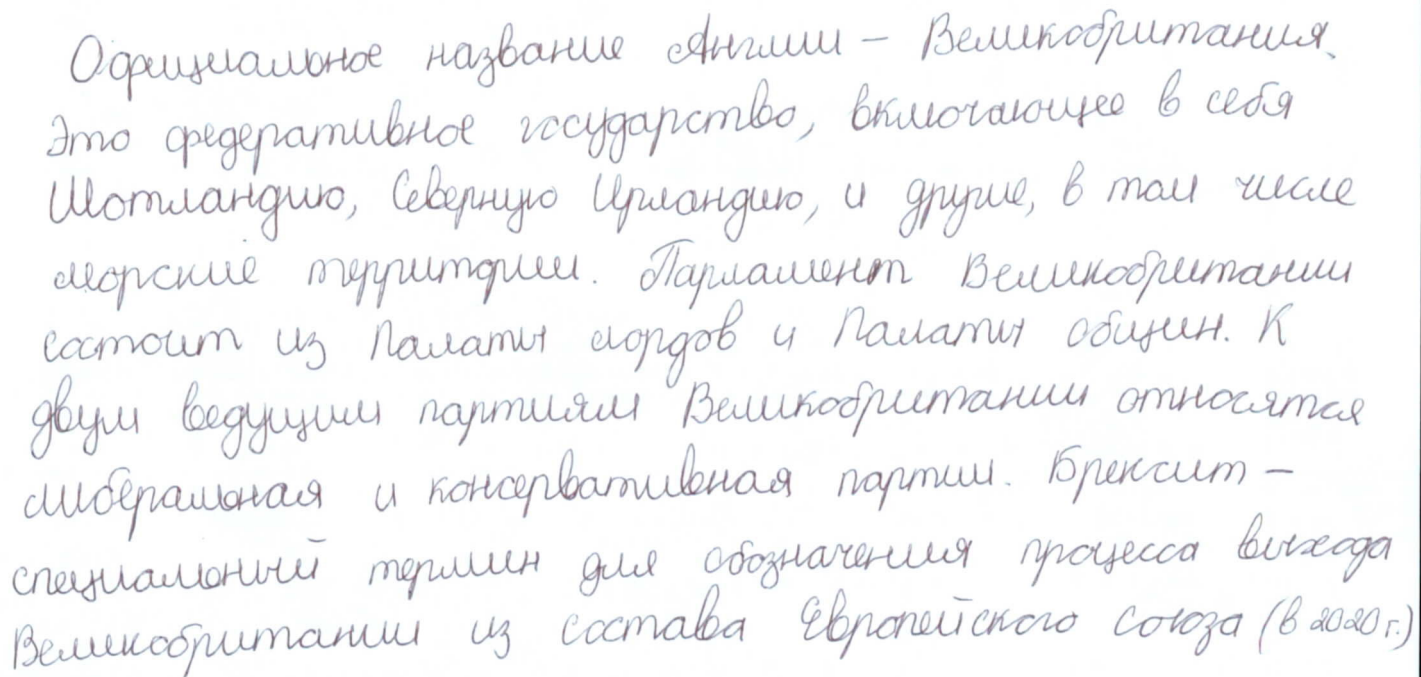 Официальное название Англии – Великобритания.
Это федеративное государство, включающее в себя
Шотландию, Северную Ирландию, и другие, в том числе
морские территории. Парламент Великобритании
состоит из Палаты лордов и Палаты общин. К
двум ведущим партиям Великобритании относятся
либеральная и консервативная партии. Брексит –
специальный термин для обозначения процесса выхода
Великобритании из состава Европейского Союза (в 2020 г.)